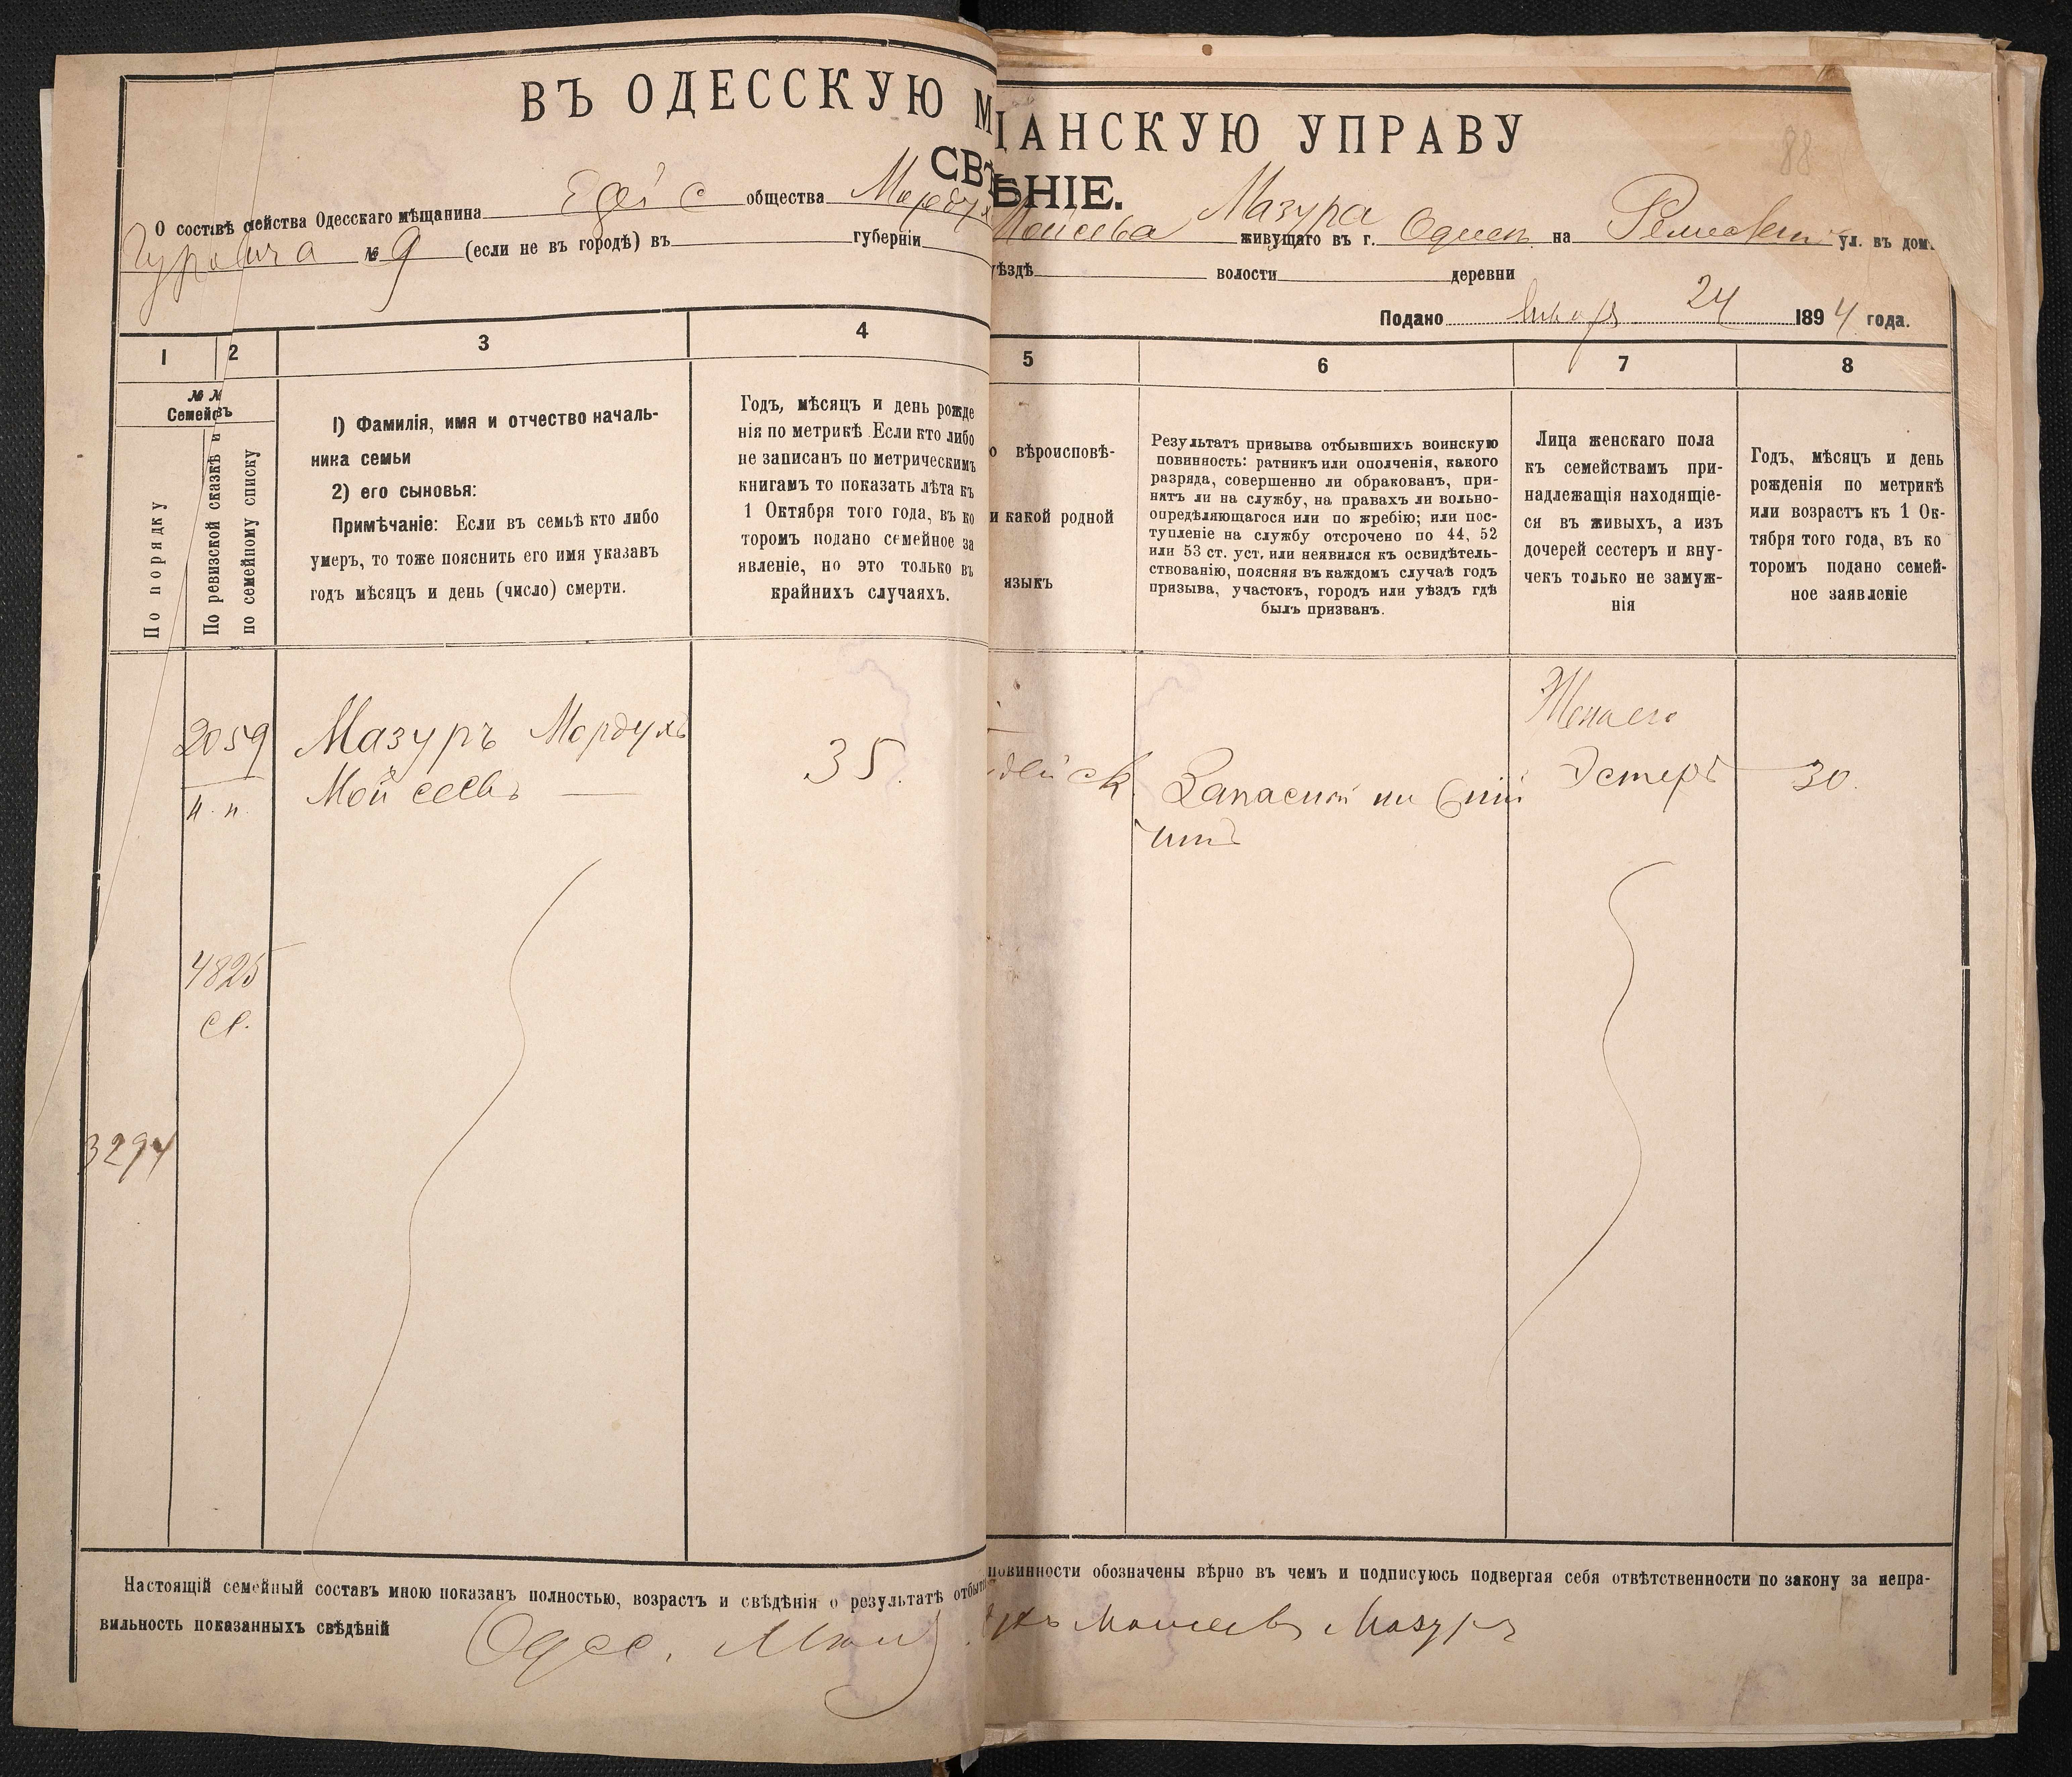 ВЪ ОДЕССКУЮ М ЩАНСКУЮ УПРАВУ
СВѢ ѢНІЕ.
88
О составѣ семейства Одесскаго мѣщанина общества Мордух Мойсева Мазура живущаго въ г. Одессѣ на ул. въ дом.
Гуровича № 9 (если не въ городѣ) въ губерніи уѣздѣ волости деревни
Подано Января 24 1894 года.
1 2 3 4 5 6 7 8
№ №
Семействъ
По порядку
По ревизской сказкѣ и
по семейному списку
1) Фамилія, имя и отчество началь-
ника семьи
2) его сыновья:
Примѣчаніе: Если въ семьѣ кто либо
умеръ, то тоже пояснить его имя указавъ
годъ мѣсяцъ и день (число) смерти.
Годъ, мѣсяцъ и день рожде
нія по метрикѣ. Если кто либо
не записанъ по метрическимъ
книгамъ то показать лѣта къ
1 Октября того года, въ ко
торомъ подано семейное за
явленіе, но это только въ
крайнихъ случаяхъ.
о вѣроисповѣ-
и какой родной
языкъ
Результатъ призыва отбывшихъ воинскую
повинность: ратникъ или ополченія, какого
разряда, совершенно ли обракованъ, при-
нятъ ли на службу, на правахъ ли вольно-
опредѣляющагося или по жребію; или пос-
тупленіе на службу отсрочено по 44, 52
или 53 ст. уст. или неявился къ освидѣтель-
ствованію, поясняя въ каждомъ случаѣ годъ
призыва, участокъ, городъ или уѣздъ гдѣ
былъ призванъ.
Лица женскаго пола
къ семействамъ при-
надлежащія находящіе-
ся въ живыхъ, а изъ
дочерей сестеръ и вну-
чекъ только не замуж-
нія
Годъ, мѣсяцъ и день
рожденія по метрикѣ
или возрастъ къ 1 Ок-
тября того года, въ ко
торомъ подано семей-
ное заявленіе
2059 Мазуръ Мордухъ Жена его
н. п. Мойсеевъ 35. Запасной Эстеръ 30.
4825
св.
3294
Настоящій семейный составъ мною показанъ полностью, возрастъ и свѣдѣнія о результатѣ отбыт повинности обозначены вѣрно въ чемъ и подписуюсь подвергая себя отвѣтственности по закону за непра-
вильность показанныхъ свѣдѣній Одес. Мѣщ. ухъ Мошеевъ Мазуръ